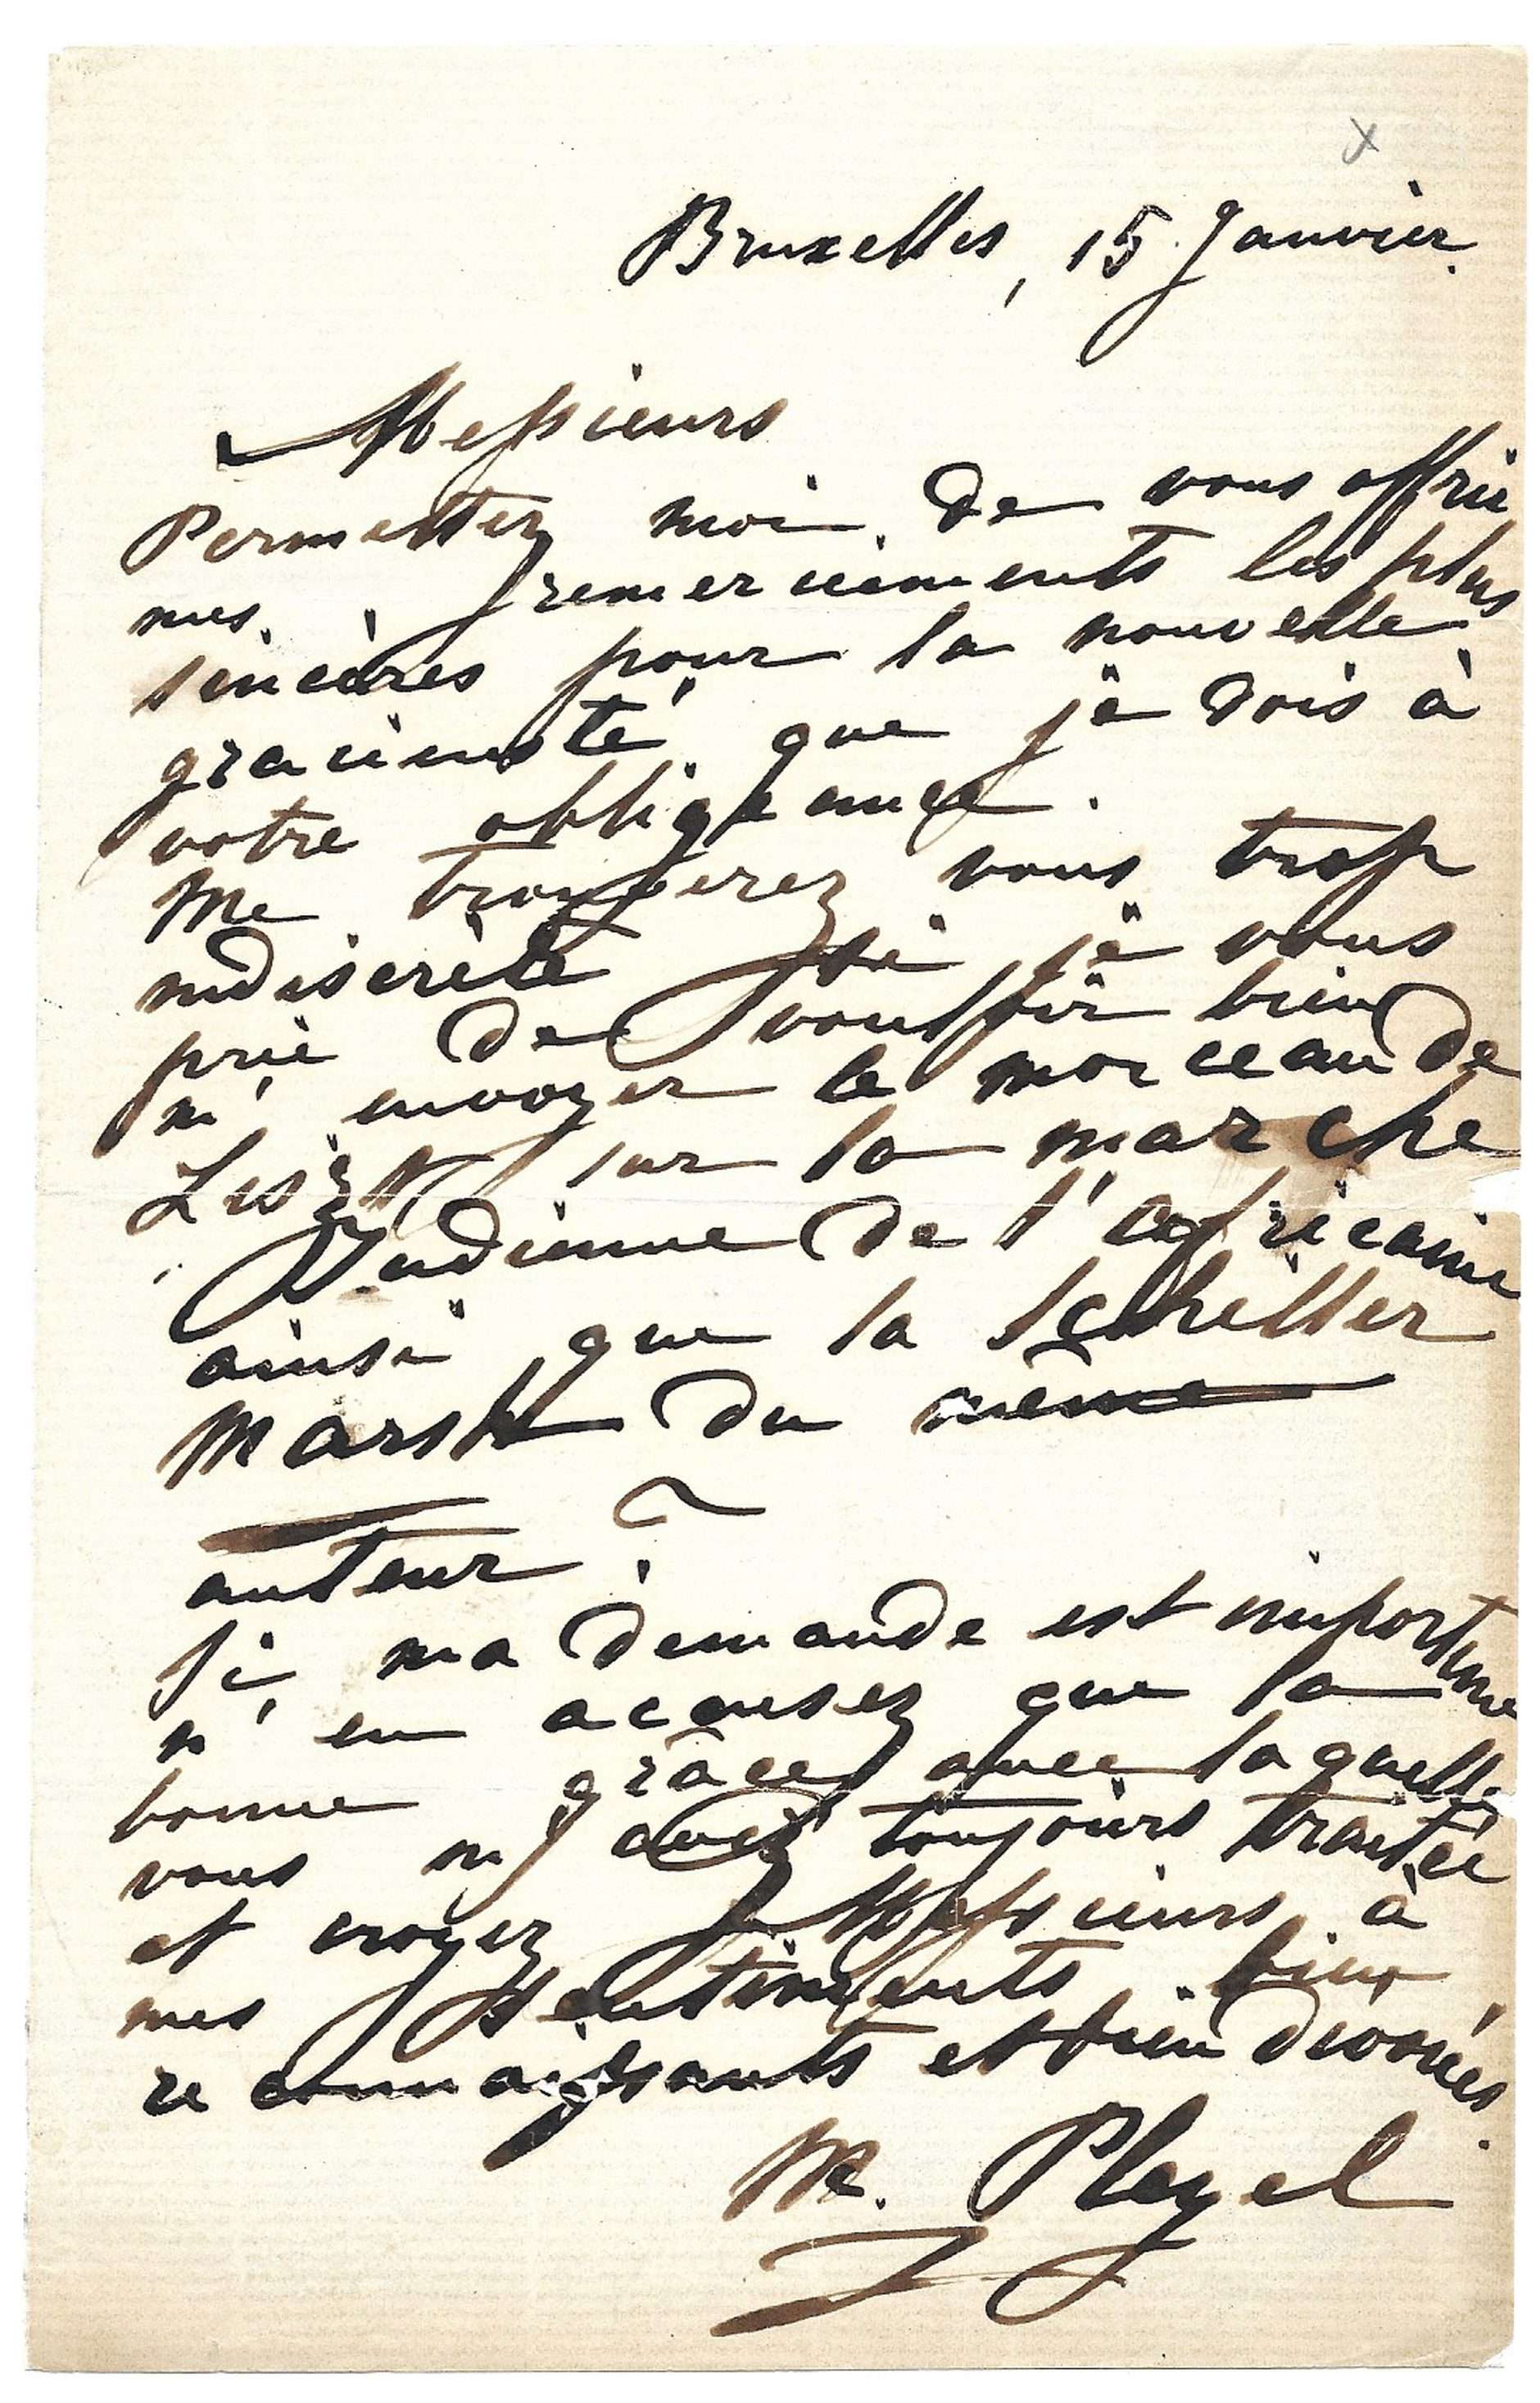 Bruxelles, 15 Janvier.
Messieurs
Permettez moi de vous offrir
mes remerciements les plus
sincères pour la nouvelle
gracieusté que je dois à
votre obligeance.
Me trouverez vous trop
indiscrète si je vous
prie de vouloir bien
m'envoyer le morceau de
Liszt sur la marche
Indienne de l'africaine
ainsi que la Schiller
Marsh du même
auteur ?
Si ma demande est importune
n'en accusez que la
bonne grâce avec laquelle
vous m'avez toujours traitée
et croyez Messieurs à
mes sentiments bien
reconnaissants et bien dévoués.
M. Pleyel